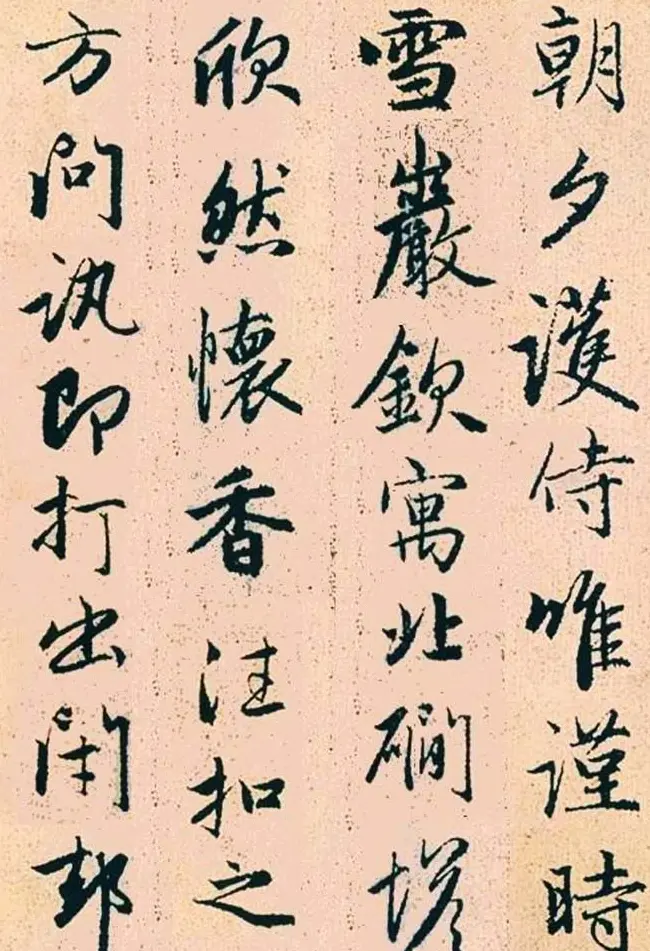 朝夕護侍唯謹時
雪巖欽寓北磵塔
欣然懷香往扣之
方問訊即打出閉却